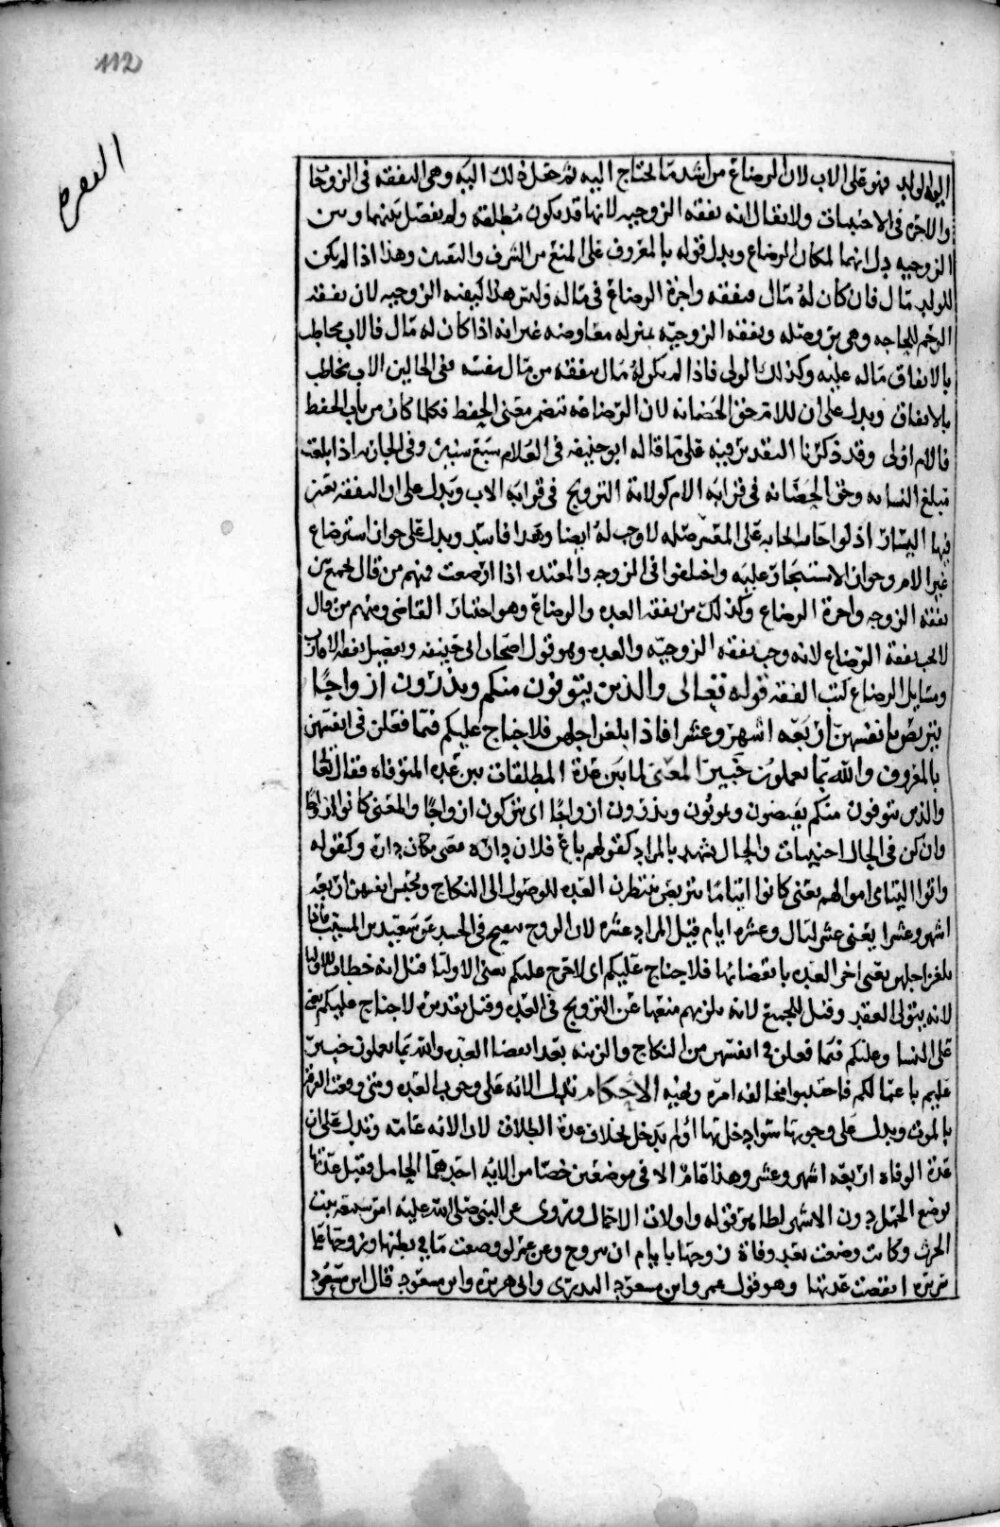 112
البقرة
اليه الولد فهو على الاب لان الرضاع من اشد ما يحتاج اليه ثم جعل ذلك اليه وهى النفقه فى الزوجا
والاجره فى الاجنبيات ولا يقال انه نفقه الزوجيه لانها قد تكون مطلقه ولم يفصل بينهما وبين
الزوجيه دل انهما لمكان الرضاع ويدل قوله بالمعروف على المنع من السرف والتقتير وهذا اذا لم يكن
للولد مال فان كان له مال فنفقه واجرة الرضاع فى ماله وليس هذا كنفقه الزوجيه لان نفقه
الرحم للحاجه وهى بر وصله ونفقه الزوجيه بمنزله معاوضه غير انه اذا كان له مال فالاب مخاطب
بالانفاق ماله عليه وكذلك الولى فاذا لم يكن له مال ينفقه من مال نفسه ففى الحالين الاب مخاطب
بالانفاق ويدل على ان للام حق الحضانه لان الرضاعه تتضمن معنى الحفظ فكلما كان من باب الحفظ
فالام اولى وقد ذكرنا التقدير فيه على ما قاله ابو حنيفه فى الغلام سبع سنين وفى الجاريه اذا بلغت
مبلغ النساء وحق الحضانه فى قرابه الام كولاية التزويج فى قرابه الاب ويدل على ان النفقه يعتبر
فيها اليسار اذ لو احلنا على المعسر صله لاوجب له ايضا وهذا فاسد ويدل على جواز استرضاع
غير الام وجواز الاستيجار عليه واختلفوا فى الزوجه والمعتده اذا ارضعت فمنهم من قال يجمع بين
نفقة الزوجه واجرة الرضاع وكذلك من نفقه العده والرضاع وهو اختيار القاضى ومنهم من قال
لا يجب نفقة الرضاع لانه وجب نفقه الزوجيه والعده وهو قول اصحاب ابى حنيفه وتفصيل نفقه الاقارب
ومسايل الرضاع كتب الفقه قوله تعالى والذين يتوفون منكم ويذرون ازواجا
يتربصن بانفسهن اربعه اشهر وعشرا فاذا بلغن اجلهن فلا جناح عليكم فيما فعلن فى انفسهن
بالمعروف والله بما تعملون خبير المعنى لما بين عدة المطلقات بين عده المتوفاه فقال تعالى
والذين يتوفون منكم يقبضون ويموتون ويذرون ازواجا اى يتركون ازواجا والمعنى كانوا ازواجا
وان كن فى الحال اجنبيات والحال يشهد بالمراد كقولهم باع فلان داره معنى مكان داره وكقوله
واتوا اليتامى اموالهم يعنى كانوا ايتاما يتربصن ينتظرن العده للوصول الى النكاح ويحبس انفسهن اربعه
اشهر وعشرا يعنى عشر ليال وعشره ايام قيل المراد عشره لان الروح ينفخ فى الجسد عن سعيد بن المسيب فاذا
بلغن اجلهن يعنى اخر العده بانقضائها فلا جناح عليكم اى لا حرج عليكم يعنى الاوليا قيل انه خطاب للاوليا
لانه يتولى العقد وقيل للجميع لانه يلزمهم منعها عن التزويج فى العده وقيل تقديره لا جناح عليكم يعنى
على النسا وعليكم فيما فعلن فى انفسهن من النكاح والزينه بعد انقضا العده والله بما تعملون خبير
عليم باعمالكم فاجتنبوا مخالفه امره ونهيه الاحكام تدل الايه على وجوب العده ومتى وقعت الفرقه
بالموت ويدل على وجوبها سوا دخل بها او لم يدخل بخلاف عدة الطلاق لان الايه عامه وتدل على ان
عدة الوفاه اربعه اشهر وعشر وهذا عام الا فى موضعين خصا من الايه احدهما الحامل وقيل عدتها
بوضع الحمل دون الاشهر لظاهر قوله واولات الاحمال ويروى عن النبى صلى الله عليه امر سبيعه بنت
الحرث وكانت وضعت بعد وفاة زوجها بايام ان تتزوج وعن عمر لو وضعت ما فى بطنها وزوجها على
سريره انقضت عدتها وهو قول عمر وابن مسعود البدرى وابى هريره وابن مسعود قال ابن مسعود